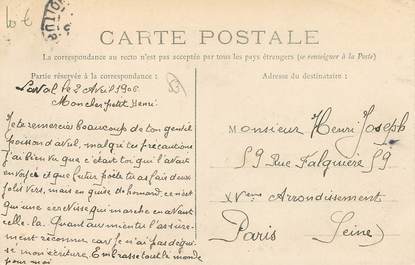 10 €
CARTE POSTALE
La correspondance au recto n'est pas acceptée par tous les pays étrangers (se renseigner à la Poste)
Partie réservée à la correspondance :
Adresse du destinataire :
Laval le 2 Avril 1906
Mon cher petit Henri
Je te remercie beaucoup de ton gentil
poisson d'avril, malgré tes précautions
j'ai bien vu que c'était toi qui l'avait
envoyé et que futur poète tu as fais deux
jolis vers, mais en guise de homard, ce n'est
qu'une ecrevisse qui marche en avant
celle-là. Quant au mien tu l'as sure-
ment reconnu car je n'ai pas dégui-
sé mon écriture. Embrasse tout le monde
pour moi
Monsieur Henri Joseph
59 Rue Falguière 59
XVème Arrondissement
Paris
Seine)